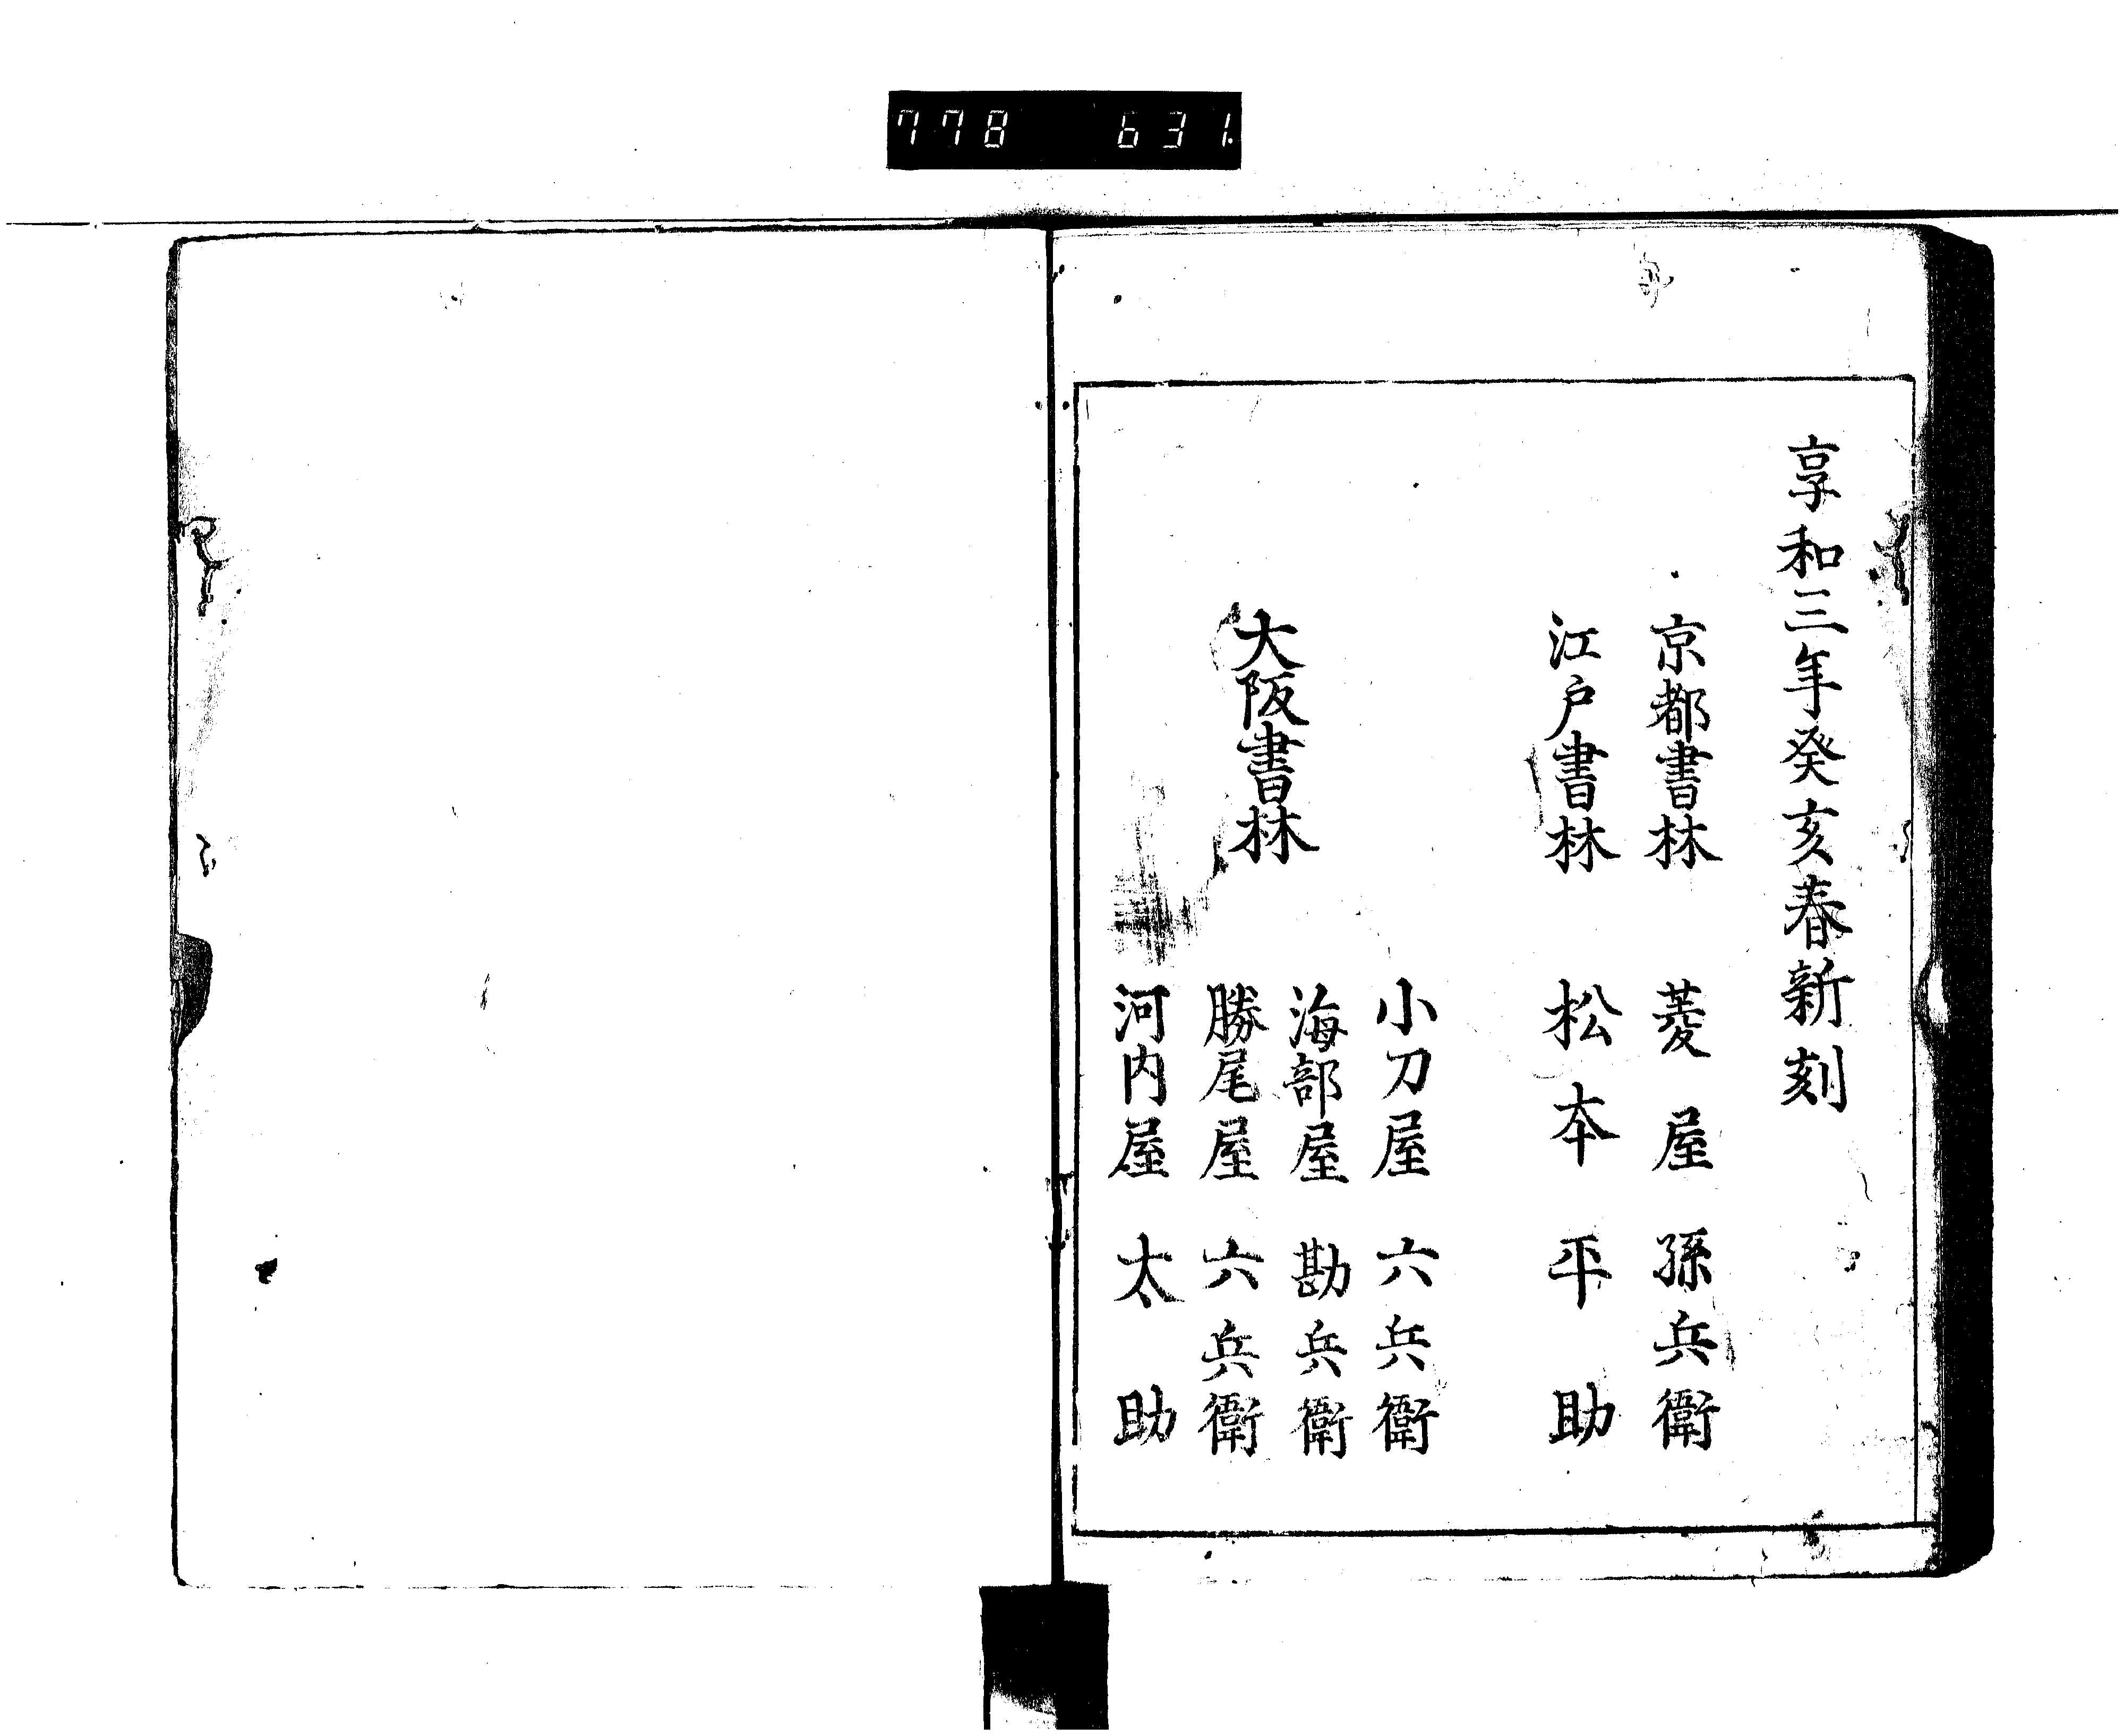 778 631
享和三年癸亥春新刻
京都書林 菱屋孫兵衛
江戸書林 松本平助
大阪書林
小刀屋六兵衛
海部屋勘兵衛
勝尾屋六兵衛
河内屋太助